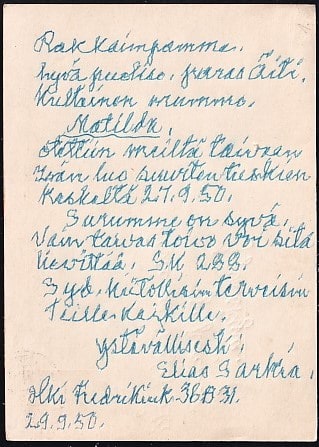 Rakkaimpamme,
hyvä puoliso, paras Äiti,
Kultainen mummo,
Matilda,
otettiin meiltä taivaan
Isän luo suurten tuskien
keskeltä 27.9.50.
Surumme on syvä,
Vain taivas toivo voi sitä
lievittää. S.V. 233.
Syd.
terveisin
Teille kaikille.
ystävällisesti:
Elias Sarkia.
Hki Fredrikink 36 B 31.
29.9.50.